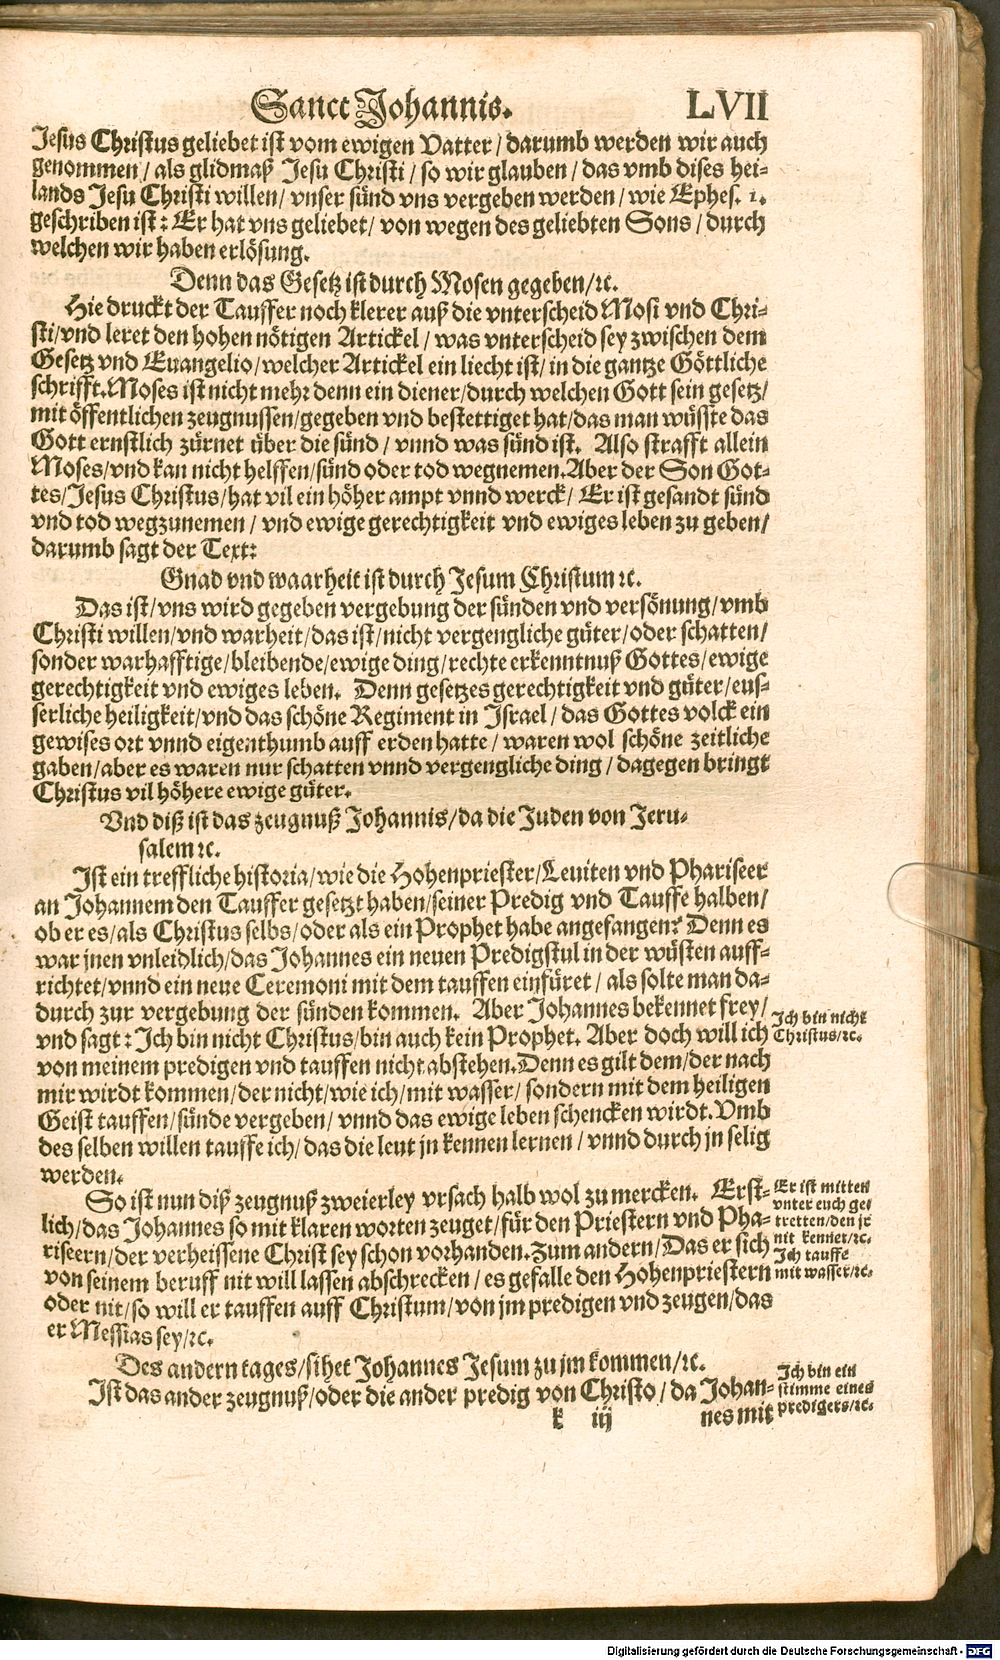 Sanct Johannis. LVII
Jesus Christus geliebet ist vom ewigen Vatter / darumb werden wir auch
genommen / als glidmaß Jesu Christi / so wir glauben / das vmb dises hei-
lands Jesu Christi willen / vnser sünd vns vergeben werden / wie Ephes. 1.
geschriben ist: Er hat vns geliebet / von wegen des geliebten Sons / durch
welchen wir haben erlösung.
Denn das Gesetz ist durch Mosen gegeben /ꝛc.
Hie druckt der Tauffer noch klerer auß die vnterscheid Mosi vnd Chri-
sti/vnd leret den hohen nötigen Artickel / was vnterscheid sey zwischen dem
Gesetz vnd Euangelio/welcher Artickel ein liecht ist/in die gantze Göttliche
schrifft. Moses ist nicht mehr denn ein diener/durch welchen Gott sein gesetz/
mit öffentlichen zeugnussen/gegeben vnd bestettiget hat/das man wüsste das
Gott ernstlich zürnet über die sünd / vnnd was sünd ist. Also strafft allein
Moses/vnd kan nicht helffen/sünd oder tod wegnemen. Aber der Son Got-
tes/Jesus Christus/hat vil ein höher ampt vnnd werck/ Er ist gesandt sünd
vnd tod wegzunemen / vnd ewige gerechtigkeit vnd ewiges leben zu geben/
darumb sagt der Text:
Gnad vnd waarheit ist durch Jesum Christum ꝛc.
Das ist/vns wird gegeben vergebung der sünden vnd versönung/vmb
Christi willen/vnd warheit/das ist/nicht vergengliche güter/oder schatten/
sonder warhafftige/bleibende/ewige ding/rechte erkenntnuß Gottes/ewige
gerechtigkeit vnd ewiges leben. Denn gesetzes gerechtigkeit vnd güter/eus-
serliche heiligkeit/vnd das schöne Regiment in Israel / das Gottes volck ein
gewises ort vnnd eigenthumb auff erden hatte / waren wol schöne zeitliche
gaben/aber es waren nur schatten vnnd vergengliche ding / dagegen bringt
Christus vil höhere ewige güter.
Vnd diß ist das zeugnuß Johannis/da die Juden von Jeru-
salem ꝛc.
Ist ein treffliche historia/wie die Hohenpriester/Leuiten vnd Phariseer
an Johannem den Tauffer gesetzt haben/seiner Predig vnd Tauffe halben/
ob er es/als Christus selbs/oder als ein Prophet habe angefangen? Denn es
war jnen vnleidlich/das Johannes ein neuen Predigstul in der wüsten auff-
richtet/vnnd ein neue Ceremoni mit dem tauffen einfüret / als solte man da-
durch zur vergebung der sünden kommen. Aber Johannes bekennet frey/
vnd sagt: Ich bin nicht Christus/bin auch kein Prophet. Aber doch will ich
von meinem predigen vnd tauffen nicht abstehen. Denn es gilt dem/der nach
mir wirdt kommen/der nicht/wie ich/mit wasser/ sondern mit dem heiligen
Geist tauffen/sünde vergeben/ vnnd das ewige leben schencken wirdt. Vmb
des selben willen tauffe ich/das die leut jn kennen lernen / vnnd durch jn selig
werden.
Ich bin nicht
Christus/ꝛc.
So ist nun diß zeugnuß zweierley vrsach halb wol zu mercken. Erst-
lich/das Johannes so mit klaren worten zeuget/für den Priestern vnd Pha-
riseern/der verheissene Christ sey schon vorhanden. Zum andern/Das er sich
von seinem beruff nit will lassen abschrecken/es gefalle den Hohenpriestern
oder nit/so will er tauffen auff Christum/von jm predigen vnd zeugen/das
er Messias sey/ꝛc.
Er ist mitten
vnter euch ge-
tretten/den jr
nit kennet/ꝛc.
Ich tauffe
mit wasser/ꝛc.
Des andern tages/sihet Johannes Jesum zu jm kommen/ꝛc.
Ist das ander zeugnuß/oder die ander predig von Christo / da Johan-
Ich bin ein
stimme eines
predigers/ꝛc.
k iij nes mit
Digitalisierung gefördert durch die Deutsche Forschungsgemeinschaft - DFG